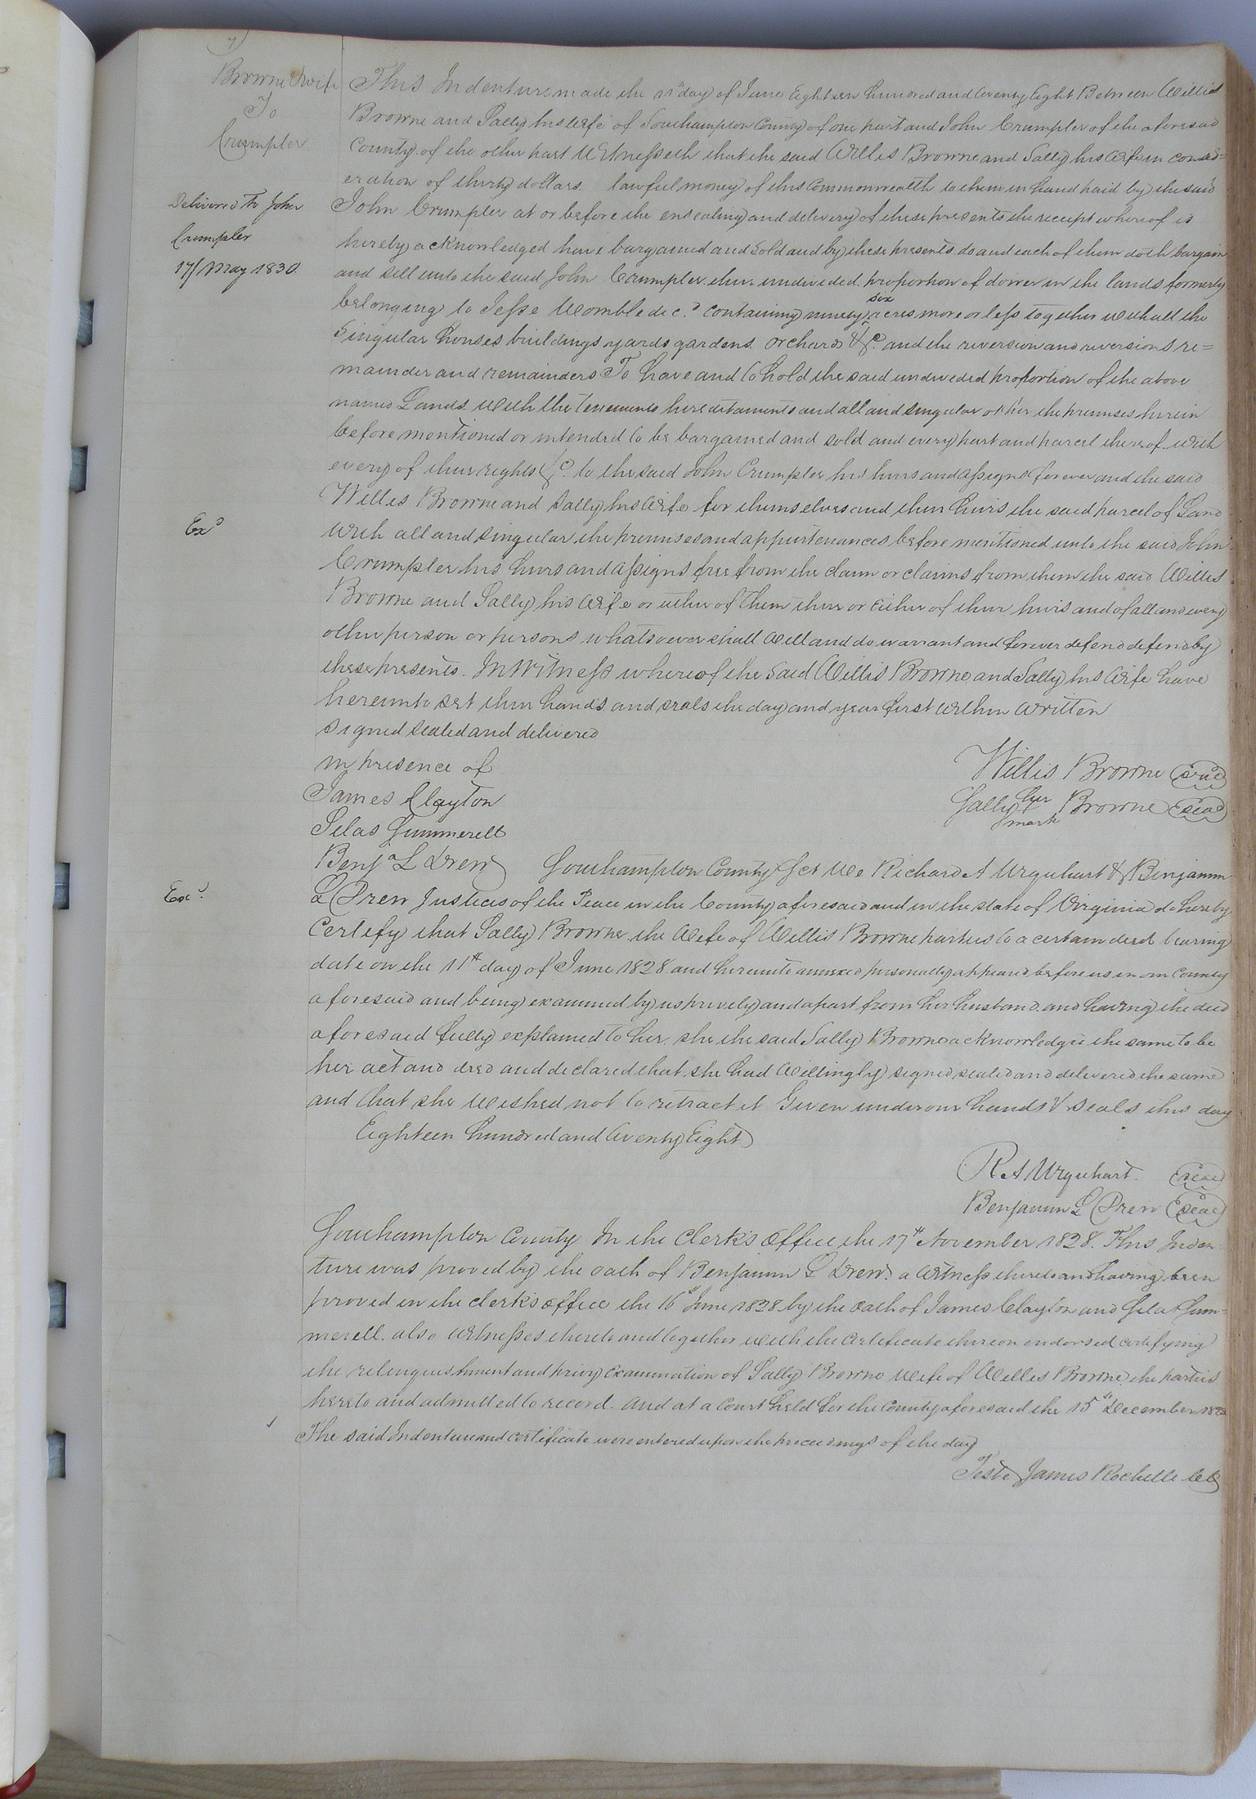 7
Browne & wife
To
Crumpler
Delivered to John
Crumpler
17/ May 1830
Exd
Exd
This Indenture made the 11th day of June Eighteen hundred and twenty Eight Between Willis
Browne and Sally his wife of Southampton County of one part and John Crumpler of the aforesaid
County of the other part Witnesseth that the said Willis Browne and Sally his wife in consid=
eration of thirty dollars lawful money of this Commonwealth to them in hand paid by the said
John Crumpler at or before the ensealing and delivery of these presents the receipt whereof is
hereby acknowledged have bargained and sold and by these presents do and each of them doth bargain
and sell unto the said John Crumpler their undivided proportion of dower in the lands formerly
belonging to Jesse Womble decd containing ninety six acres more or less together with all the
Singular houses buildings yards gardens orchards &c and the reversion and reversions re=
mainder and remainders To have and to hold the said undivided proportion of the above
named Lands with the Tenements hereditaments and all and singular other the premises herein
before mentioned or intended to be bargained and sold and every part and parcel thereof with
every of their rights &c to the said John Crumpler his heirs and assigns forever and the said
Willis Browne and Sally his wife for themselves and their heirs the said parcel of Land
with all and singular the premises and appurtenances before mentioned unto the said John
Crumpler his heirs and assigns free from the claim or claims from them the said Willis
Browne and Sally his wife or either of them their or either of their heirs and of all and every
other person or persons whatsoever shall will and do warrant and forever defend defend by
these presents. In Witness whereof the said Willis Browne and Sally his wife have
hereunto set their hands and seals the day and year first within written
Signed sealed and delivered
in presence of
James Clayton
Silas Summerell
Benja L Drew
Willis Browne Seal
Sally her mark Browne Seal
Southampton County Sct We Richard A Urquhart & Benjamin
L Drew Justices of the Peace in the County aforesaid and in the state of Virginia do hereby
Certify that Sally Browne the Wife of Willis Browne parties to a certain deed bearing
date on the 11th day of June 1828 and hereunto annexed personally appeared before us in our County
aforesaid and being examined by us privily and apart from her husband and having the deed
aforesaid fully explained to her she the said Sally Browne acknowledged the same to be
her act and deed and declared that she had Willingly signed sealed and delivered the same
and that she wished not to retract it Given under our hands & seals this day
Eighteen hundred and twenty Eight
R A Urquhart. Seal
Benjamin L Drew Seal
Southampton County In the Clerks Office the 17th November 1828. This Inden
ture was proved by the oath of Benjamin L Drew a witness thereto and having been
proved in the clerk's office the 16th June 1828 by the oath of James Clayton and Silas Sum=
merell also witnesses thereto and together with the certificate thereon endorsed certifying
the relinquishment and privy examination of Sally Browne wife of Willis Browne the parties
hereto and admitted to record. And at a Court held for the County aforesaid the 15th December 1828
The said Indenture and certificate were entered upon the proceedings of the day
Teste James Rochelle